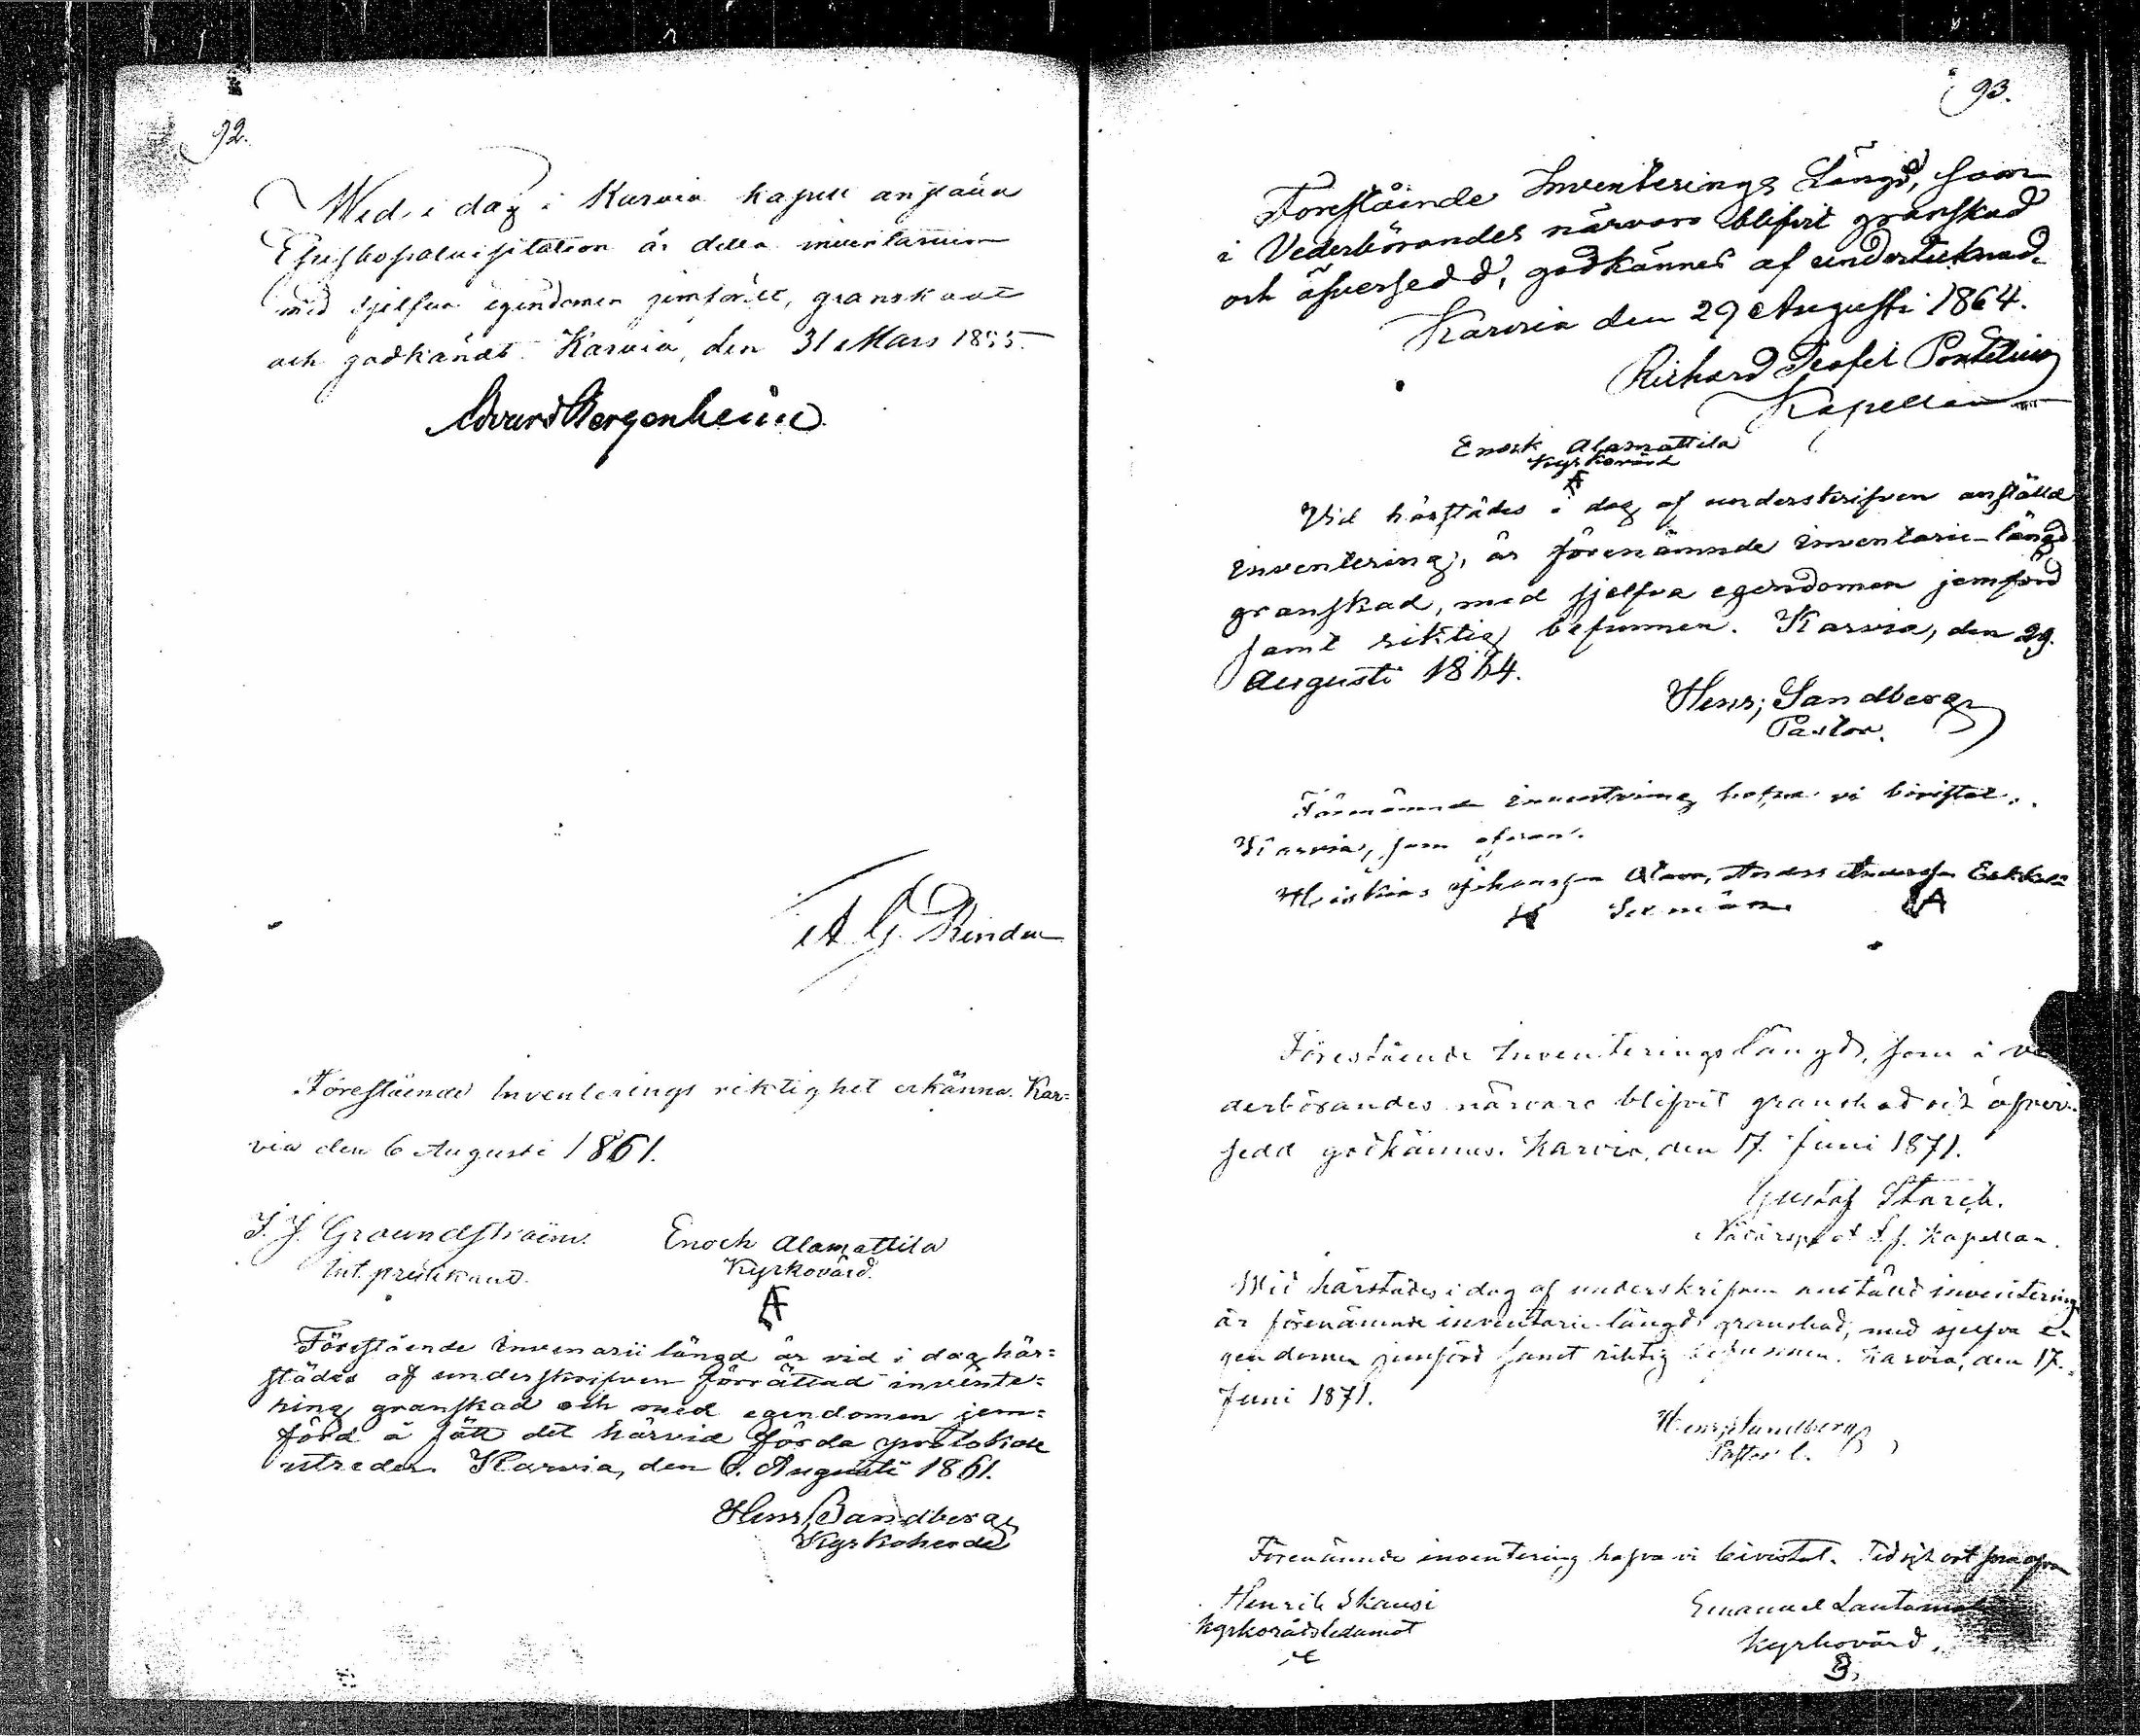 92.
Wid i dag i Karvia kapell anstäld
Episkopalvisitation är detta inventarium
med sjelfva egendomen jemfördt, granskadt
och godkändt. Karvia, den 31 Mars 1855.
Edvard Bergenheim
A. G.
Föreståends Inventerings riktighet erkänna. Kar=
via den 6 Augusti 1861.
J. J. Groundstroëm. Enoch Alamattila
Int. predikand. Kyrkovärd.
A
Förestående Invenarii längd är vid i dag här=
städes af underskrifven förrättad invente=
ring granskad och med egendomen jem=
förd å sätt det härvid förda protokoll
utreder. Karvia, den 6. Augusti 1861.
Henr; Sandberg
Kyrkoherde
93.
Föreståënde Inventerings Längd, som
i Vederbörandes närvaro blifvit granskad
och öfversedd, godkännes af undertecknad.
Karvia den 29 Augusti 1864.
Richard Teofil Pontelius
Kapellan
Enok Alamattila
Kyrkovärd
A
Vid härstädes i dag af underskrifven anställd
inventering, är förenämnde inventarie-längd
granskad, med sjelfva egendomen jemförd
samt riktig befunnen. Karvia, den 29.
Augusti 1864.
Henr; Sandberg
Pastor.
Förenämnde inventering hafva vi bivistat.
Karvia, som ofvan.
Hiskias Johansson Alava, Anders Andersson
Sexmän
Föreståënde Inventerings längd, som i ve
derbörandes närvaro blifvit granskad och öfver=
sedd godkännes. Karvia, den 17. Juni 1871.
Gustaf Starck.
t. f. Kapellan.
Wid härstädes i dag af underskrifven anstäld inventering
är förenämnde inventarie-längd granskad, med sjelfva e=
gendomen jemförd samt riktig befunnen. Karvia, den 17.
Juni 1871.
Henr; Sandberg
Pastor l.
Förenämnde inventering hafva vi bivistat. Tid och ort som ofvan
Henrik Skausi Emanuel
Kyrkorådsledamot Kyrkovärd.